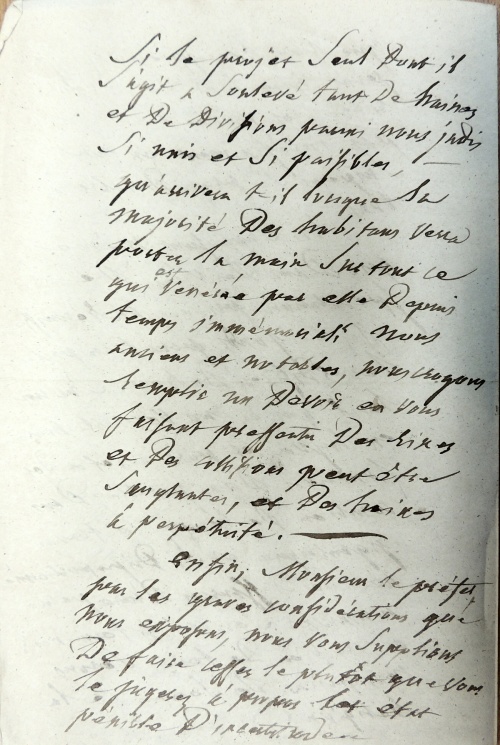 Si le projet Seul Dont il
S'agit a Soulevé tant De haines
et De Divisions parmi nous jadis
Si unis et Si paisibles,
qu'arrivera t-il lorsque la
majorité Des habitans verra
porter la main Sur tout ce
qui est vénéré par elle Depuis
temps immémorial; nous
anciens et notables, nous croyons
remplir un Devoir en vous
faisant pressentir Des Rixes
et Des collisions peut être
Sanglantes, et Des haines
à perpétuité.
Enfin, Monsieur le préfet
par les graves considérations que
nous exposons, nous vous Supplions
De faire cesser le plutôt que vous
le jugerez à propos cet état
pénible D'incertitude